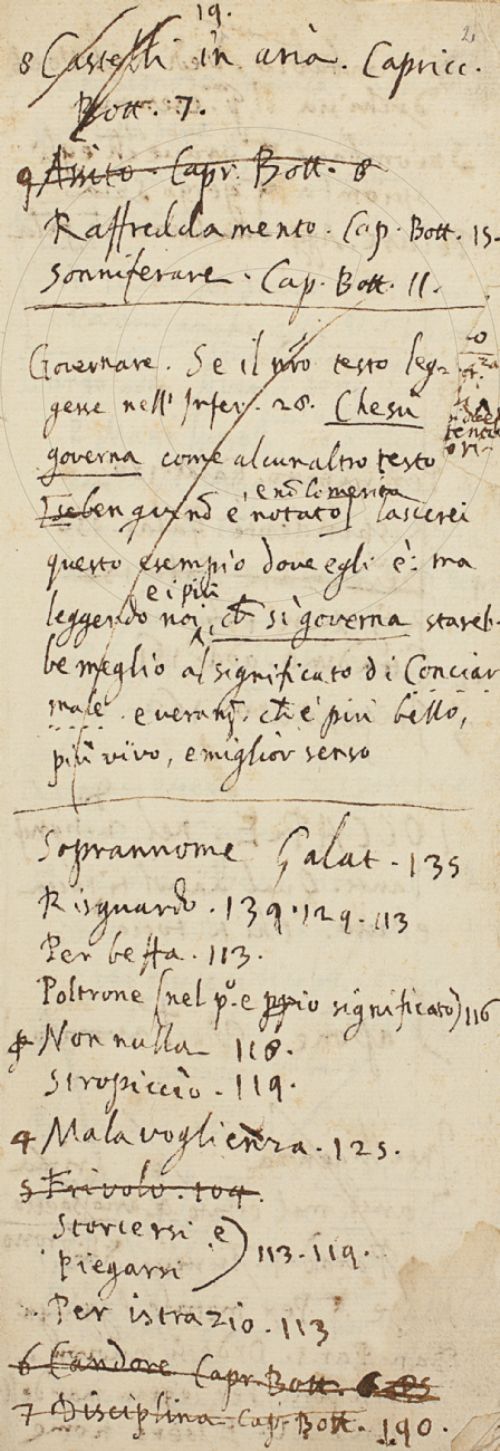 19.
2
8 Castelli in aria. Capricc.
Bott. 7.
9 Assito. Capr. Bott. 8
Raffreddamento. Cap. Bott. 15.
Sonniferare. Cap. Bott. 11.
Governare. Se il nr̃o testo leg-
gesse nell' Infer. 28. Che sù
governa come alcun altro testo
e nō lo merita
ben que nō è notato] lascerei
questo esempio dove egli è: ma
e i più
leggendo noi, ch̄ si governa stareb-
be meglio al significato di Conciar
male. e ch̄ è più bello,
più vivo, e miglior senso
Soprannome Galat. 135
Risguardo. 139. 129. 113
Per beffa. 113.
Poltrone (nel p.º e ꝓpio significato) 116
Non nulla 118.
Stropiccio. 119.
4 Malavoglienza. 125.
5 Frivolo. 104.
Storcersi e
Piegarsi ) 113. 119.
Per istrazio. 113
6 Candore Capr. Bott. 6
7 Disciplina Cap. Bott. 190.